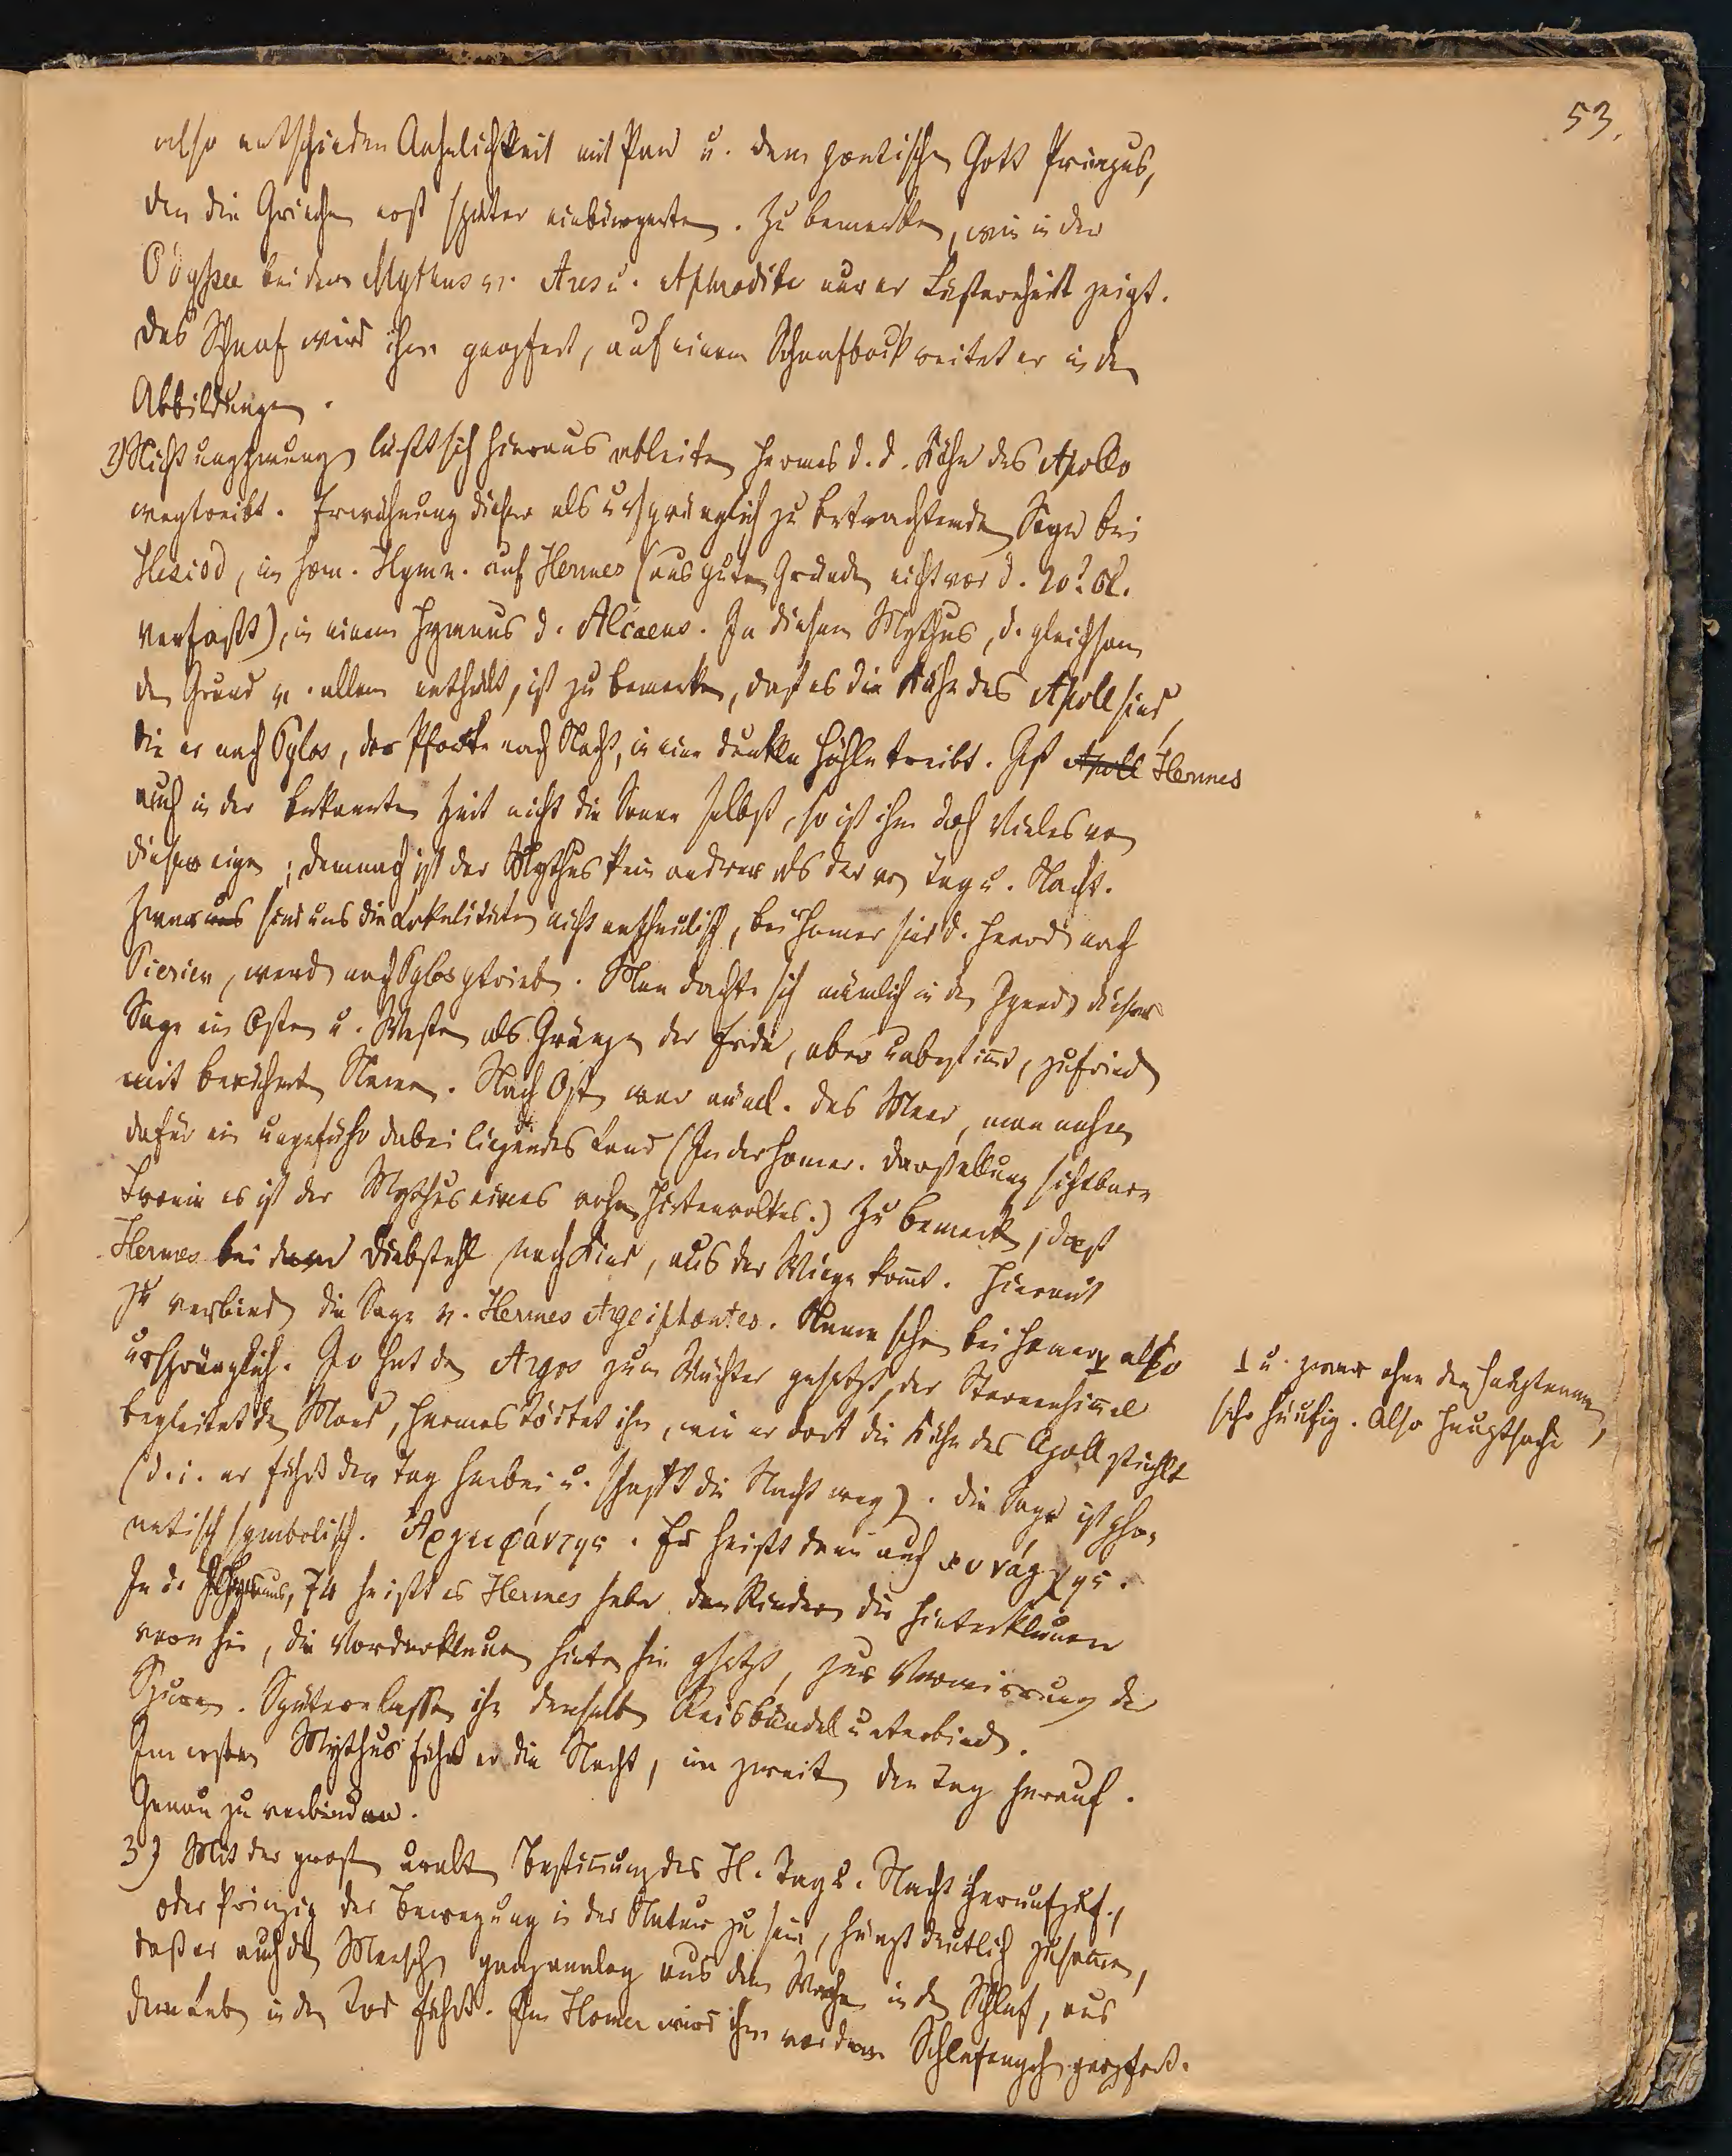 53.
also entschieden Aehnlichkeit mit Pan u. dem poetischen Gott Priapus,
den die Griechen erst später einbürgerten. Zu bemerken, wie in der
Odyssee bei dem Mythus v. Ares u. Aphrodite nur er Lüsternheit zeigt.
Das Schaaf wird ihm geopfert, auf einem Schaafbock reitet er in den
Abbildungen.
2) Nicht ungezwungen läßt sich hieraus ableiten Hermes d. d. Kühe des Apollo
wegtreibt. Erwähnung dieser als ursprünglich zu betrachtenden Sage bei
Hesiod, im hom. Hymn. auf Hermes (aus guten Gründen nicht vor d. 20? Ol.
verfaßt), in einem Hymnus d. Alcaeus. In diesem Mythus, d. gleichsam
den Grund v. allem enthält, ist zu bemerken, daß es die Kühe des Apoll sind,
die er nach Pylos, der Pforte nach Nacht, in eine dunkle Höhle treibt. Ist Apoll Hermes
auch in der bekannten Zeit nicht die Sonne selbst, so ist ihm doch Vieles von
dieser eigen; demnach ist der Mythus kein andrer als der von Tag u. Nacht.
Zwar uns sind uns die Lokalitäten nicht anschaulich, bei Homer sind d. Heerd. nach
Pierien, werd. nach Pylos getrieb. Man dachte sich nämlich in den Gegend. dieser
Sage im Osten u. Westen als Gränzen der Erde, aber unbestimmt, zufrieden
mit berühmten Namen. Nach Osten war näml. das Meer, man nahm
dafür ein ungefähr dabei liegendes Land (In der homer. Darstellung sichtbare
Ironie es ist der Mythus eines rohen Hirtenvolkes.) Zu bemerk., daß
Hermes bei dem Diebstahl noch Kind, aus der Wiege kommt. Hiermit
zu verbinden die Sage v. Hermes Argeiphontes. Name schon bei Homer ⊥ also
ursprünglich. Io hat den Argos zum Wächter gesetzt, der Sternenhimmel
⊥ u. zwar ohne den Hauptnamen,
sehr häufig. Also Hauptsache
begleitet den Mond, Hermes tödtet ihn, wie er dort die Kühe des Apoll stiehlt
(d. i. er führt den Tag herbei u. schafft die Nacht weg). Die Sage ist pho-
netisch symbolisch. Ἀργειφόντης. Er heißt dann auch κυνάγχης.
In d. Hymnus, 74 heißt es Hermes habe den Rindern die Hinterklauen
vorn hin, die Vorderklauen hinten hin gesetzt, zur Verwirrung der
Spuren. Spätere lassen ihn denselben Reisbündel unterbinden.
Im ersten Mythus führt er die Nacht, im zweiten den Tag herauf.
Genau zu verbinden.
3) Mit der großen uralten Bestimmung des H. Tag u. Nacht heraufzuf.,
oder Prinzip der Bewegung in der Natur zu sein, hängt deutlich zusammen,
daß er auch den Menschen ganz analog aus dem Wachen in den Schlaf, aus
dem Leben in den Tod führt. Im Homer wird ihm vor dem Schlafengehen geopfert.